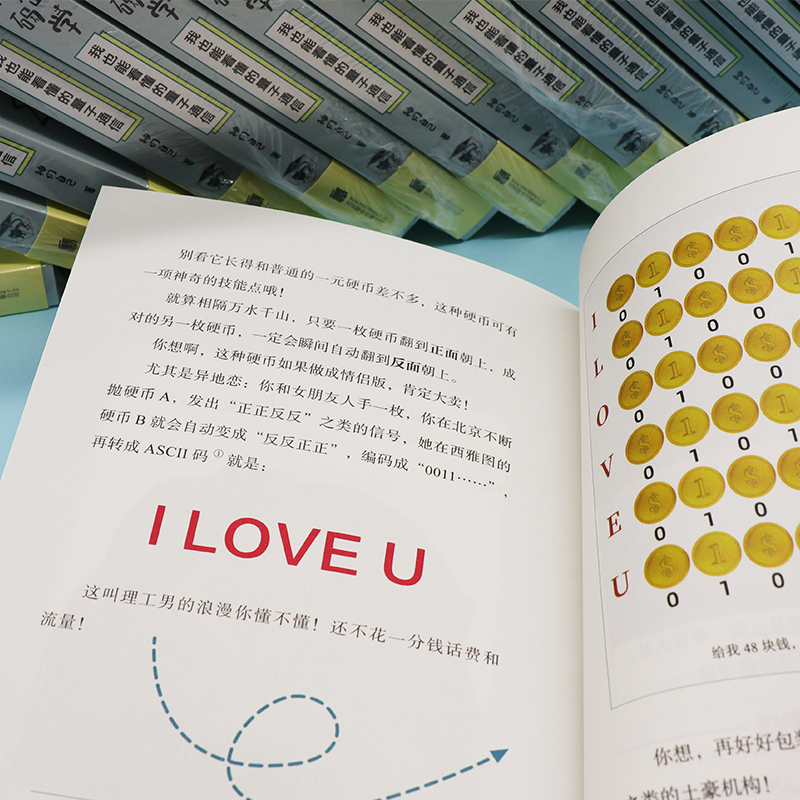 码学
我也能看懂的量子通信
我也能看懂的量子通信
我也能看懂的量子通信
我也能看懂的量子通信
我也能看懂的量子通信
我也能看懂的量子通信
我也能看懂的量子通信
别看它长得和普通的一元硬币差不多，这种硬币可有
一项神奇的技能点哦！
就算相隔万水千山，只要一枚硬币翻到正面朝上，成
对的另一枚硬币，一定会瞬间自动翻到反面朝上。
你想啊，这种硬币如果做成情侣版，肯定大卖！
尤其是异地恋：你和女朋友人手一枚，你在北京不断
抛硬币 A，发出“正正反反”之类的信号，她在西雅图的
硬币 B 就会自动变成“反反正正”，编码成“0011……”，
再转成 ASCII 码①就是：
I LOVE U
这叫理工男的浪漫你懂不懂！还不花一分钱话费和
流量！
I 0 1 0 0 1
L 0 1 0 0
O 0 1 0 0
V 0 1 0 1
E 0 1 0
U 0 1 0
给我 48 块钱，
你想，再好好包装
之类的土豪机构！